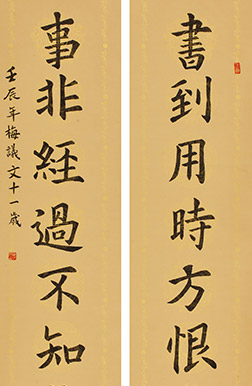 書到用時方恨
事非經過不知
壬辰年梅議文十一歲